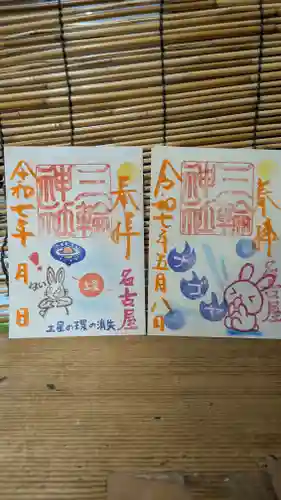 奉拝
三輪神社
令和七年 月 日
名古屋
はい
土星
土星の環の消失
奉拝
三輪神社
令和七年五月八日
名古屋